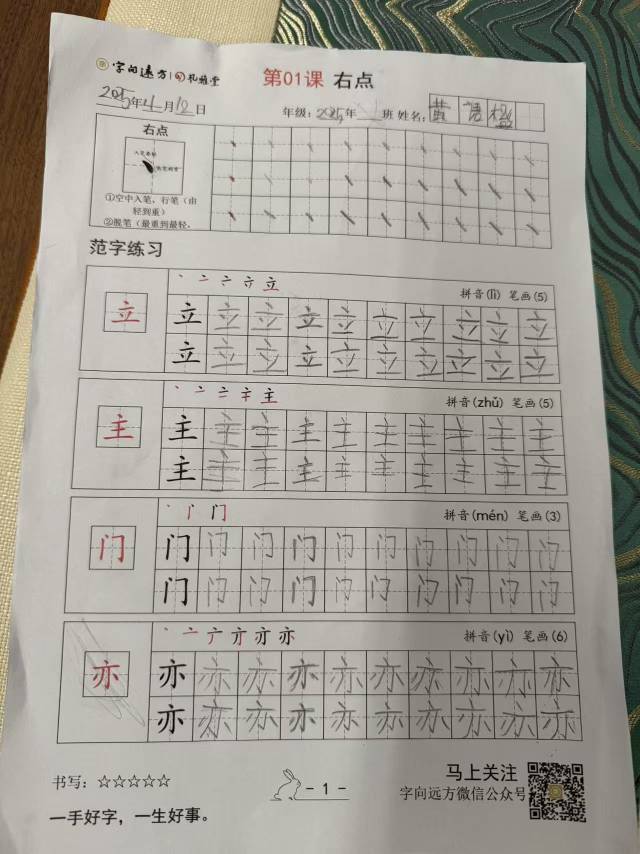 字向远方 礼雅堂
第01课 右点
2025年4月12日 年级: 2025年 班 姓名: 黄语
右点
①空中入笔，行笔（由
轻到重）
②脱笔（最重到最轻，
范字练习
丶 亠 亣 立
拼音(lì) 笔画(5)
立 立 立 立 立 立 立 立 立 立 立
立 立 立 立 立 立 立 立 立 立
拼音(zhǔ) 笔画(5)
主 主 主 主 主 主 主 主 主 主 主
主 主 主 主 主 主 主 主 主 主
拼音(mén) 笔画(3)
门 门 门 门 门 门 门 门 门 门 门
门 门 门 门 门 门 门 门 门 门
拼音(yì) 笔画(6)
亦 亦 亦 亦 亦 亦 亦 亦 亦 亦 亦
亦 亦 亦 亦 亦 亦 亦 亦 亦 亦
书写: ☆☆☆☆☆
- 1 -
马上关注
字向远方微信公众号
一手好字，一生好事。